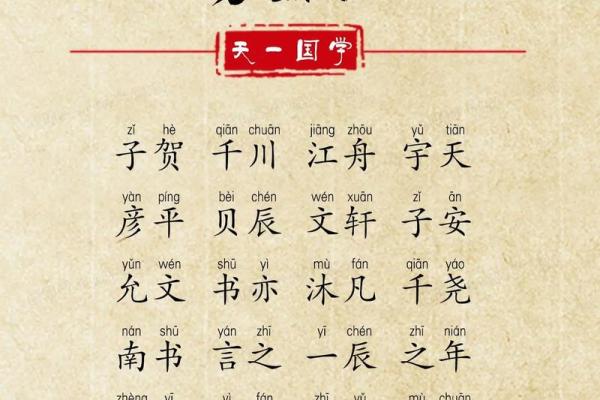 天一国学
zǐ hè qiān chuān jiāng zhōu yǔ tiān
子贺 千川 江舟 宇天
yàn píng bèi chén wén xuān zǐ ān
彦平 贝辰 文轩 子安
yǔn wén shū yì mù fán qiān yáo
允文 书亦 沐凡 千尧
nán shū yán zhī yī chén zhī nián
南书 言之 一辰 之年
zhèng yī yì fán zhī yǔ mù chuān